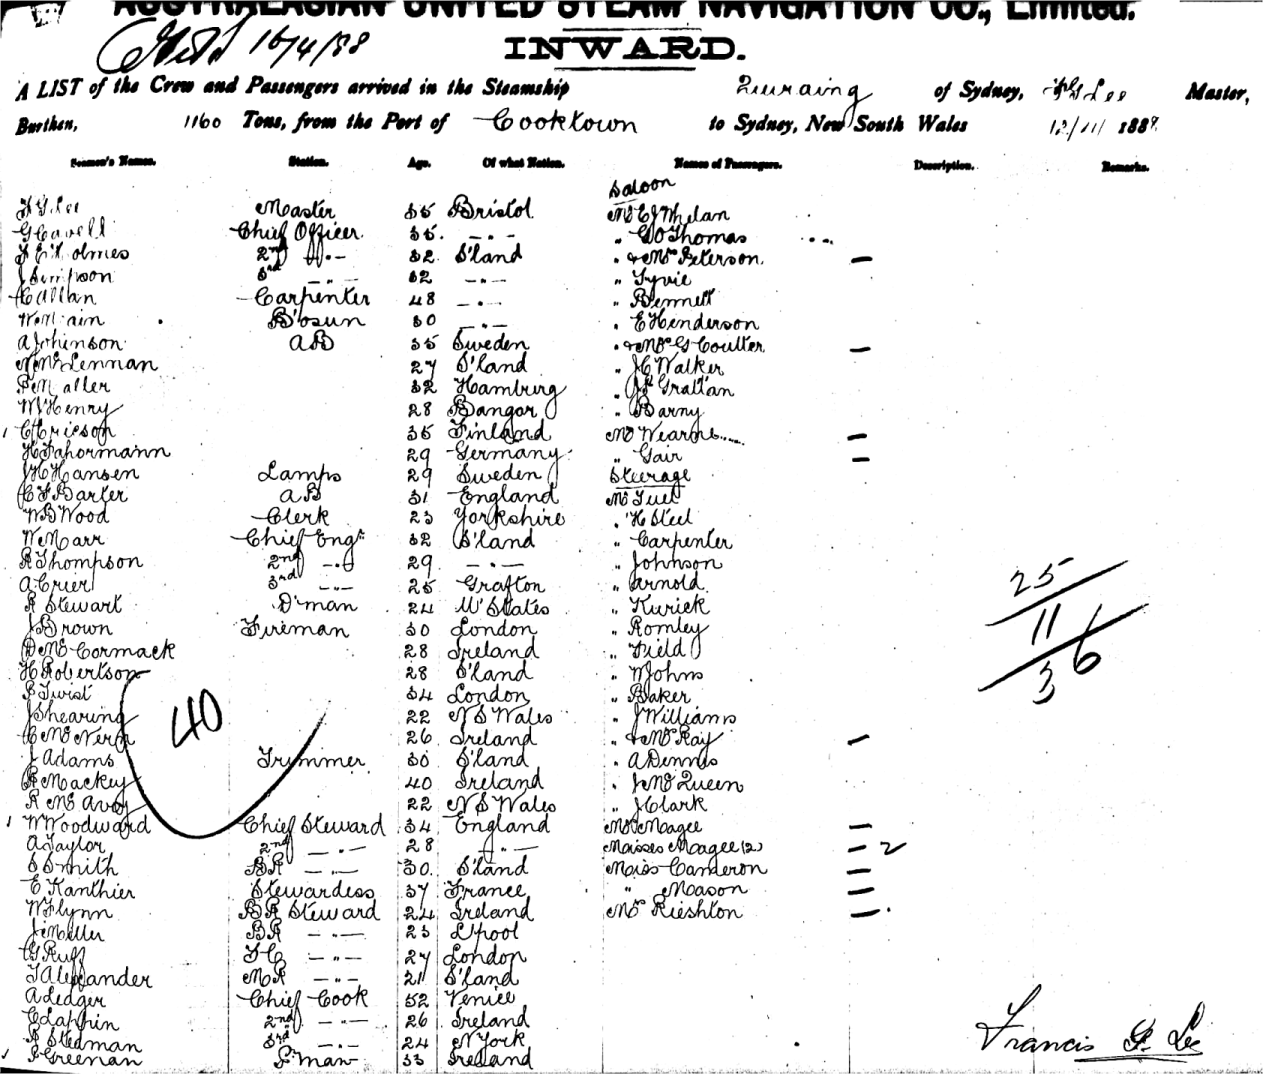 AUSTRALASIAN UNITED STEAM NAVIGATION CO., Limited.
16/4/88
INWARD.
A LIST of the Crew and Passengers arrived in the Steamship Quiraing of Sydney, F G Lee Master,
Burthen, 1160 Tons, from the Port of Cooktown to Sydney, New South Wales 12/11/ 1888
Seamen's Names. Station. Age. Of what Nation. Names of Passengers. Description. Remarks.
Saloon
F G Lee Master 55 Bristol Mr E J Whelan
G Cavell Chief Officer 35 -"- " G O Thomas
F E Holmes 2nd "- 32 S'land " & Mrs Peterson —
J Simpson 3rd -"- 32 -"- " Fyvie
C Allan Carpenter 48 -"- " Bennett
W Main B'osun 30 -"- " E Henderson
A Johinson AB 35 Sweden " & Mrs G Coulter —
N McLennan 27 S'land " J C Walker
P Maller 32 Hamburg " Grattan
W Henry 28 Bangor " Barny
C Ericson 35 Finland Mrs Wearne —
H Fahormann 29 Germany " Gair —
J H Hansen Lamps 29 Sweden Steerage
C F Barter AB 31 England Mr Tuel
W B Wood Clerk 23 Yorkshire " H Steel
W Marr Chief Engr 32 S'land " Carpenter
R Thompson 2nd -"- 29 -"- " Johnson
A Crier 3rd -"- 25 Grafton " Arnold
R Stewart D'man 24 U States " Kurick
J Brown Fireman 30 London " Romley
D McCormack 28 Ireland " Field
H Robertson 28 S'land " W Johns
P Twist 34 London " Baker
J Shearing 22 N S Wales " J Williams
C McNern 26 Ireland " & Mrs Ray —
J Adams Trimmer 30 S'land " A Dennis
R Mackey 40 Ireland " J McQueen
R McAvoy 22 N S Wales " J Clark
W Woodward Chief Steward 34 England Mrs Magee —
A Taylor 2nd -"- 28 -"- Misses Magee (2) — 2
S Smith BR -"- 30 S'land Miss Canderon —
E Kanthier Stewardess 37 France " Mason —
W Flynn BR Steward 24 Ireland Mrs Rieshton —
J Meller BR -"- 23 L'pool
G Ruff FC -"- 27 London
T Alexander MR -"- 21 S'land
A Ledger Chief Cook 52 Venice
C Lappin 2nd -"- 26 Ireland
R Stedman 3rd -"- 24 N York
P Greenan P'man 33 Ireland
40
25
11
36
Francis G. Lee